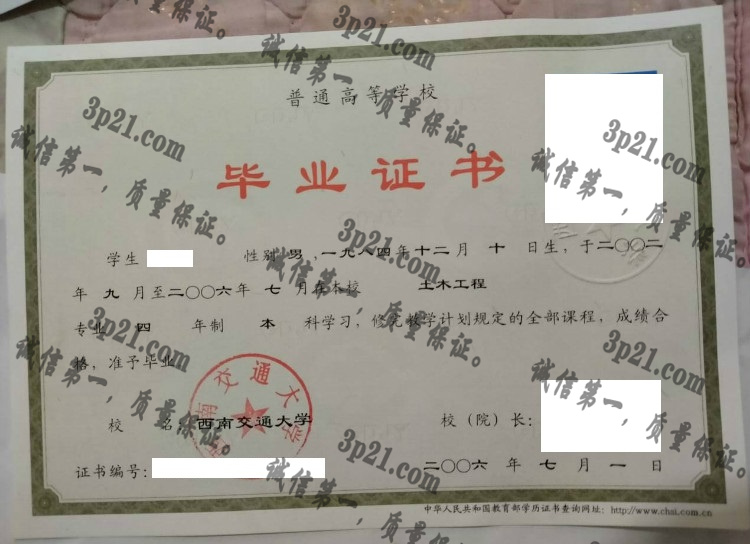 普通高等学校
毕业证书
学生 性别 男 ,一九八四年十二月 十 日生, 于二〇〇二
年 九 月至二〇〇六年 七 月在本校 土木工程
专业 四 年制 本 科学习, 修完教学计划规定的全部课程, 成绩合
格, 准予毕业
校 名: 西南交通大学
校（院）长:
证书编号:
二〇〇六 年 七 月 一 日
中华人民共和国教育部学历证书查询网址: http://www.chsi.com.cn
西南交通大学
3p21.com
诚信第一，质量保证。
3p21.com
诚信第一，质量保证。
3p21.com
诚信第一，质量保证。
3p21.com
诚信第一，质量保证。
3p21.com
诚信第一，质量保证。
3p21.com
诚信第一，质量保证。
3p21.com
诚信第一，质量保证。
3p21.com
诚信第一，质量保证。